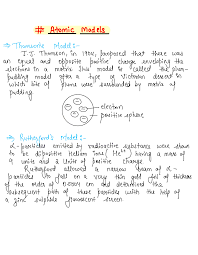 # Atomic Models
* Thomson's Model:-
J.J. Thomson, in 1904, proposed that there was
an equal and opposite positive charge enveloping the
electrons in a matrix. This model is called the plum-
pudding model after a type of Victorian dessert in
which bits of plums were surrounded by matrix of
pudding.
electron
positive sphere
* Rutherford's Model:-
α-particles emitted by radioactive substance were shown
to be dipositive Helium ions (He++) having a mass of
4 units and 2 units of positive charge.
Rutherford allowed a narrow beam of α-
particles to fall on a very thin gold foil of thickness
of the order of 0.0004 cm and determined the
subsequent path of these particles with the help of
a zinc sulphide fluorescent screen.